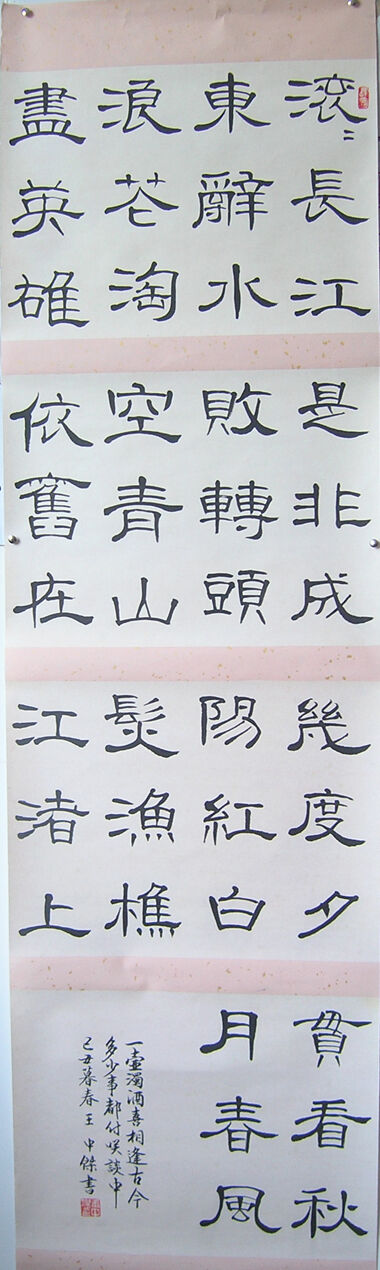 滚〻長江
東辭水
浪花淘
盡英雄
是非成
敗轉頭
空青山
依舊在
幾度夕
陽紅白
髮漁樵
江渚上
貫看秋
月春風
一壷濁酒喜相逢古今
多少事都付咲談中
己丑暮春王中傑書